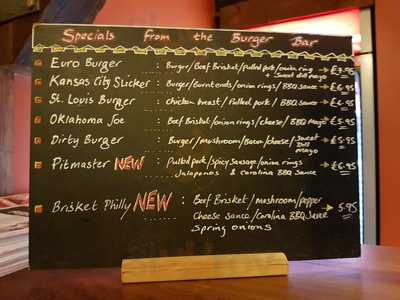 Specials from the Burger Bar
Euro Burger : Burger/Beef Brisket/Pulled pork/onion ring + Sweet dill mayo
Kansas City Slicker : Burger/Burnt ends/onion rings/BBQ Sauce £6.95
St. Louis Burger : Chicken breast/Pulled Pork/BBQ Sauce £6.95
Oklahoma Joe : Beef Brisket/onion rings/cheese/BBQ Mayo £5.95
Dirty Burger : Burger/Mushroom/Bacon/cheese/Sweet Dill mayo £5.95
Pitmaster NEW : Pulled pork/spicy sausage/onion rings £6.95
Jalapenos & Carolina BBQ Sauce
Brisket Philly NEW : Beef Brisket/mushroom/pepper 5.95
Cheese sauce/Carolina BBQ Sauce
Spring onions